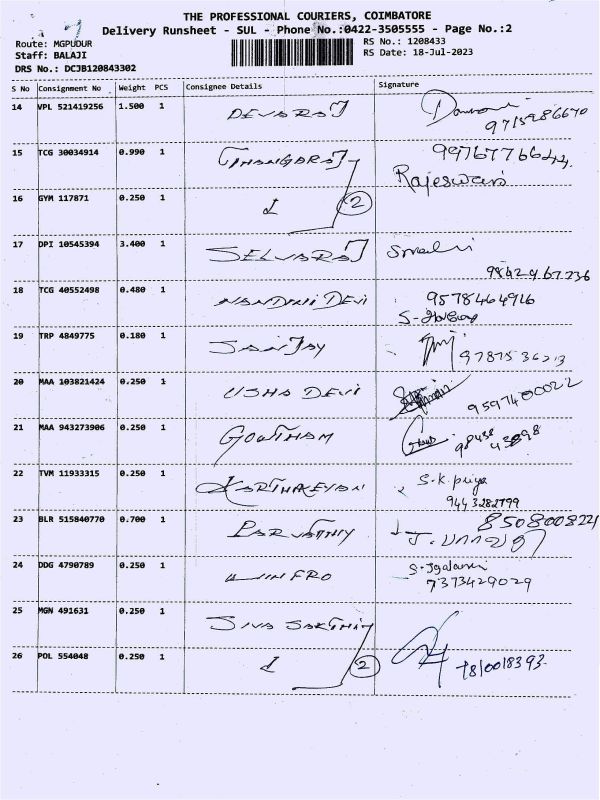 THE PROFESSIONAL COURIERS, COIMBATORE
Delivery Runsheet - SUL - Phone No.:0422-3505555 - Page No.:2
Route: MGPUDUR
RS No.: 1208433
Staff: BALAJI
RS Date: 18-Jul-2023
DRS No.: DCJB120843302
S No Consignment No Weight PCS Consignee Details Signature
14 VPL 521419256 1.500 1 DEVARAJ
9715986670
15 TCG 30034914 0.990 1 THANGARAJ 9976776644
Rajeswari
16 GYM 117871 0.250 1 2
17 DPI 10545394 3.400 1 SELVARAJ
9842967236
18 TCG 40552498 0.480 1 NANDHINI DEVI 9578464916
19 TRP 4849775 0.180 1 SANJAY 9787536213
20 MAA 103821424 0.250 1 USHA DEVI 9597400022
21 MAA 943273906 0.250 1 GOWTHAM 98438 43898
22 TVM 11933315 0.250 1 KARTHIKEYAN S.K. priya
9443282799
23 BLR 515840770 0.700 1 PARVATHIY 8508008221
24 DDG 4790789 0.250 1 WINFRO
7373429029
25 MGN 491631 0.250 1 SIVA SAKTHIY
26 POL 554048 0.250 1 2 7810018393